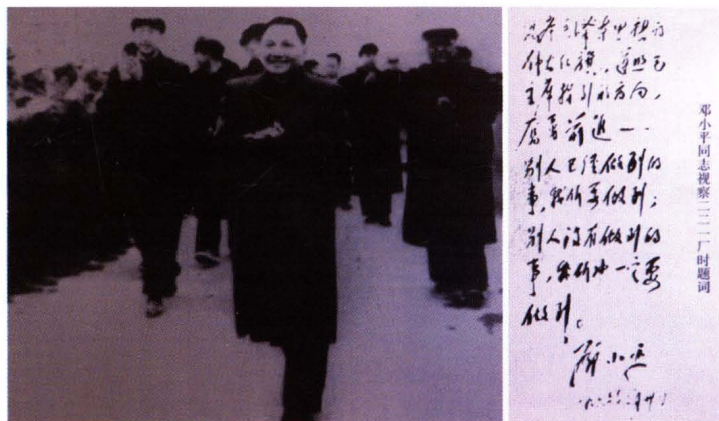 思想的
伟大红旗，遵照毛
主席指引的方向，
奋勇前进——
别人已经做到的
事，我们要做到；
别人没有做到的
事，我们也一定要
做到。
邓小平
邓小平同志视察二二一厂时题词